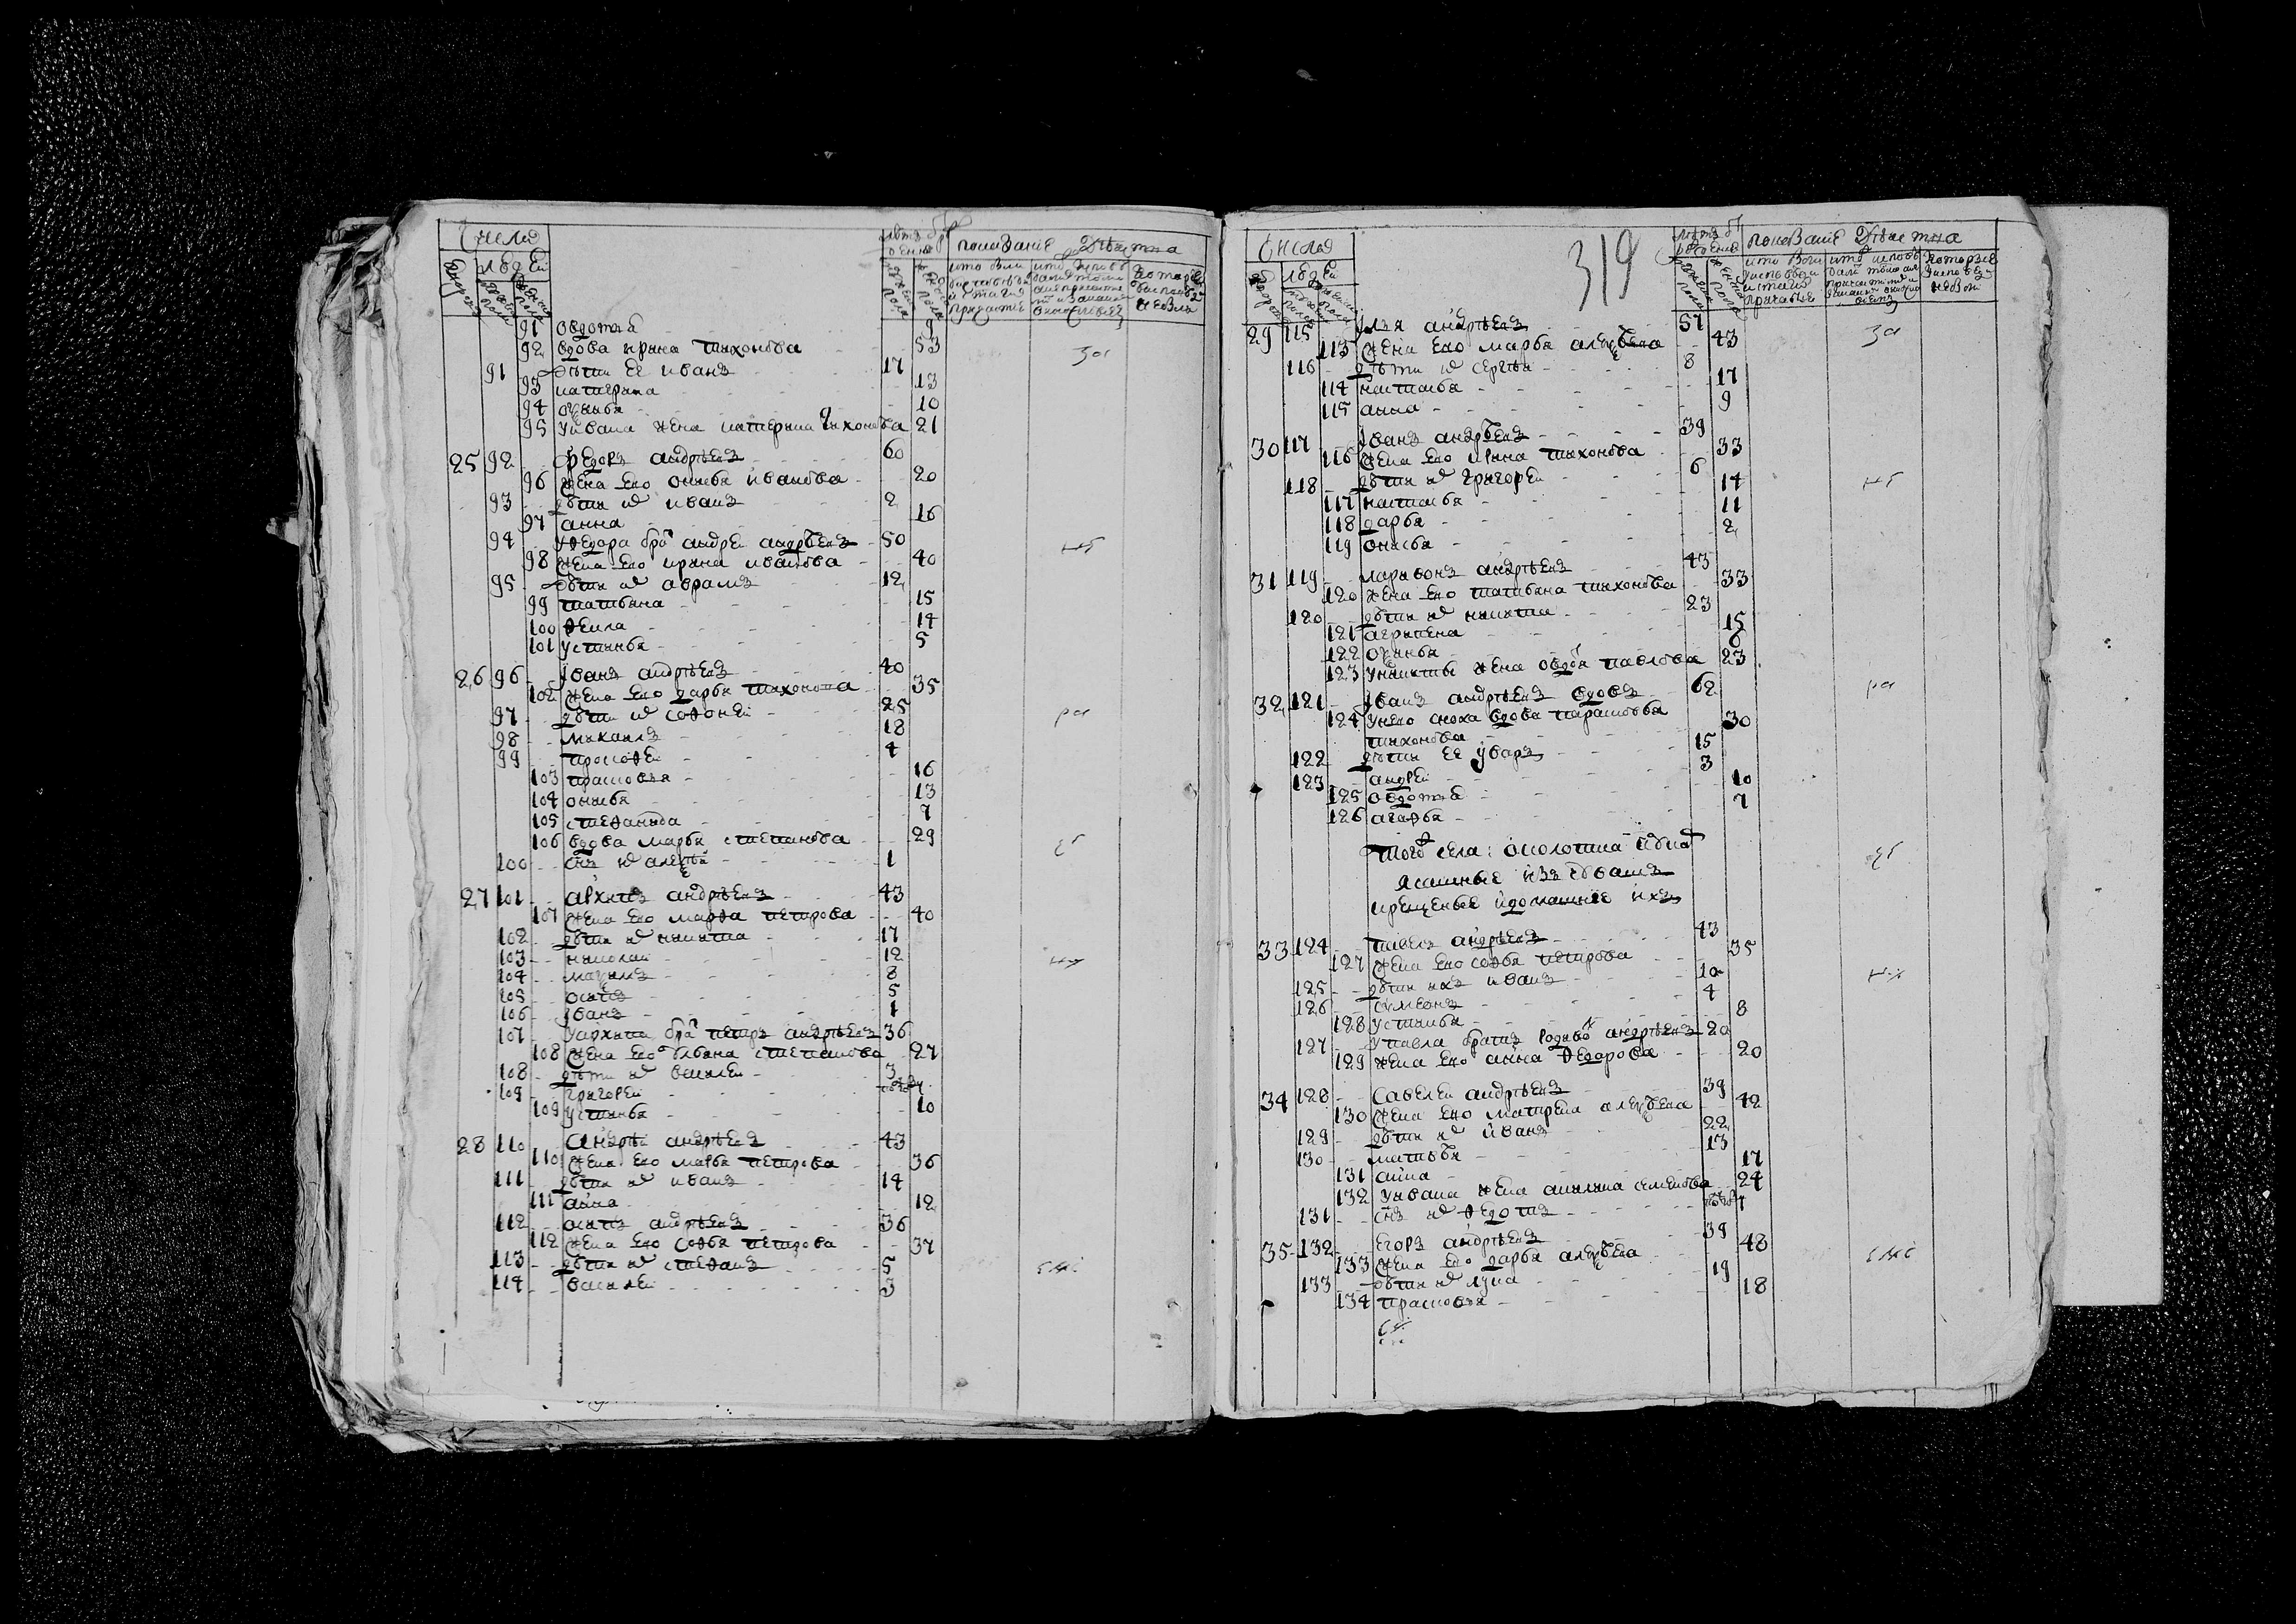 число
людей
91 овдотья 9
92 вдова ирина тихонова 53
91 дѣти ее иванъ 17
93 катерина 13
94 оринья 10
95 у ивана жена катерина тихонова 21
25 92 федоръ андрѣевъ 60
96 жена ево онисья иванова 20
93 дѣти их иванъ 2
97 анна 16
94 у федора бра андрей андрѣевъ 50
98 жена ево ирина иванова 40
95 дѣти их аврамъ 12
99 татьяна 15
100 фекла 14
101 устинья 5
26 96 иванъ андрѣевъ 40
102 жена ево дарья тихонова 35
97 дѣти их софоней 25
98 михаилъ 18
99 прокофей 4
103 прасковья 16
104 онисья 13
105 стефанида 7
106 вдова марья степанова 29
100 снъ их алеѯѣй 1
27 101 архипъ андрѣевъ 43
107 жена ево марфа петрова 40
102 дѣти их никита 17
103 николай 12
104 маѯимъ 8
105 осипъ 5
106 иванъ 1
107 у архипа бра петръ андрѣевъ 36
108 жена ево ульяна степанова 27
108 дѣти их василей 3
109 григорей
109 устинья 10
28 110 андрѣй андрѣевъ 43
110 жена ево марья петрова 36
111 дѣти их иванъ 14
111 анна 12
112 осипъ андрѣевъ 36
112 жена ево софья петрова 37
113 дѣти их стефанъ 5
114 василей 3
319
число
людей
29 115 илья андрѣевъ 57
113 жена ево марья алеѯѣева 43
116 дѣти их сергѣй 8
114 настасья 17
115 анна 9
30 117 иванъ андрѣевъ 39
116 жена ево ирина тихонова 33
118 дѣти их григорей 6
117 настасья 14
118 дарья 11
119 онисья 2
31 119 ларивонъ андрѣевъ 43
120 жена ево татьяна тихонова 33
120 дѣти их никита 23
121 агрипена 15
122 оринья 6
123 у никиты жена овдотя павлова 23
32 121 иванъ андрѣевъ вдовъ 62
124 у него сноха вдова парасковья 30
тихонова
122 дѣти ее уваръ 15
123 андрей 3
125 овдотья 10
126 агафья 7
того села: околотка
ясашные изъ чювашъ
крещеные и домашние ихъ
33 124 павелъ андрѣевъ 43
127 жена ево софья петрова 35
125 дѣти ихъ иванъ 10
126 симеонъ 4
128 устинья 8
127 у павла братъ родион андрѣевъ 20
129 жена ево анна федорова 20
34 128 савелей андрѣевъ 39
130 жена ево матрена алеѯѣева 42
129 дѣти их иванъ 22
130 матвѣй 13
131 анна 17
132 у ивана жена акилина семенова 24
131 снъ их федотъ
35 132 егоръ андрѣевъ 39
133 жена ево дарья алеѯѣева 48
133 дѣти их лука 19
134 прасковья 18